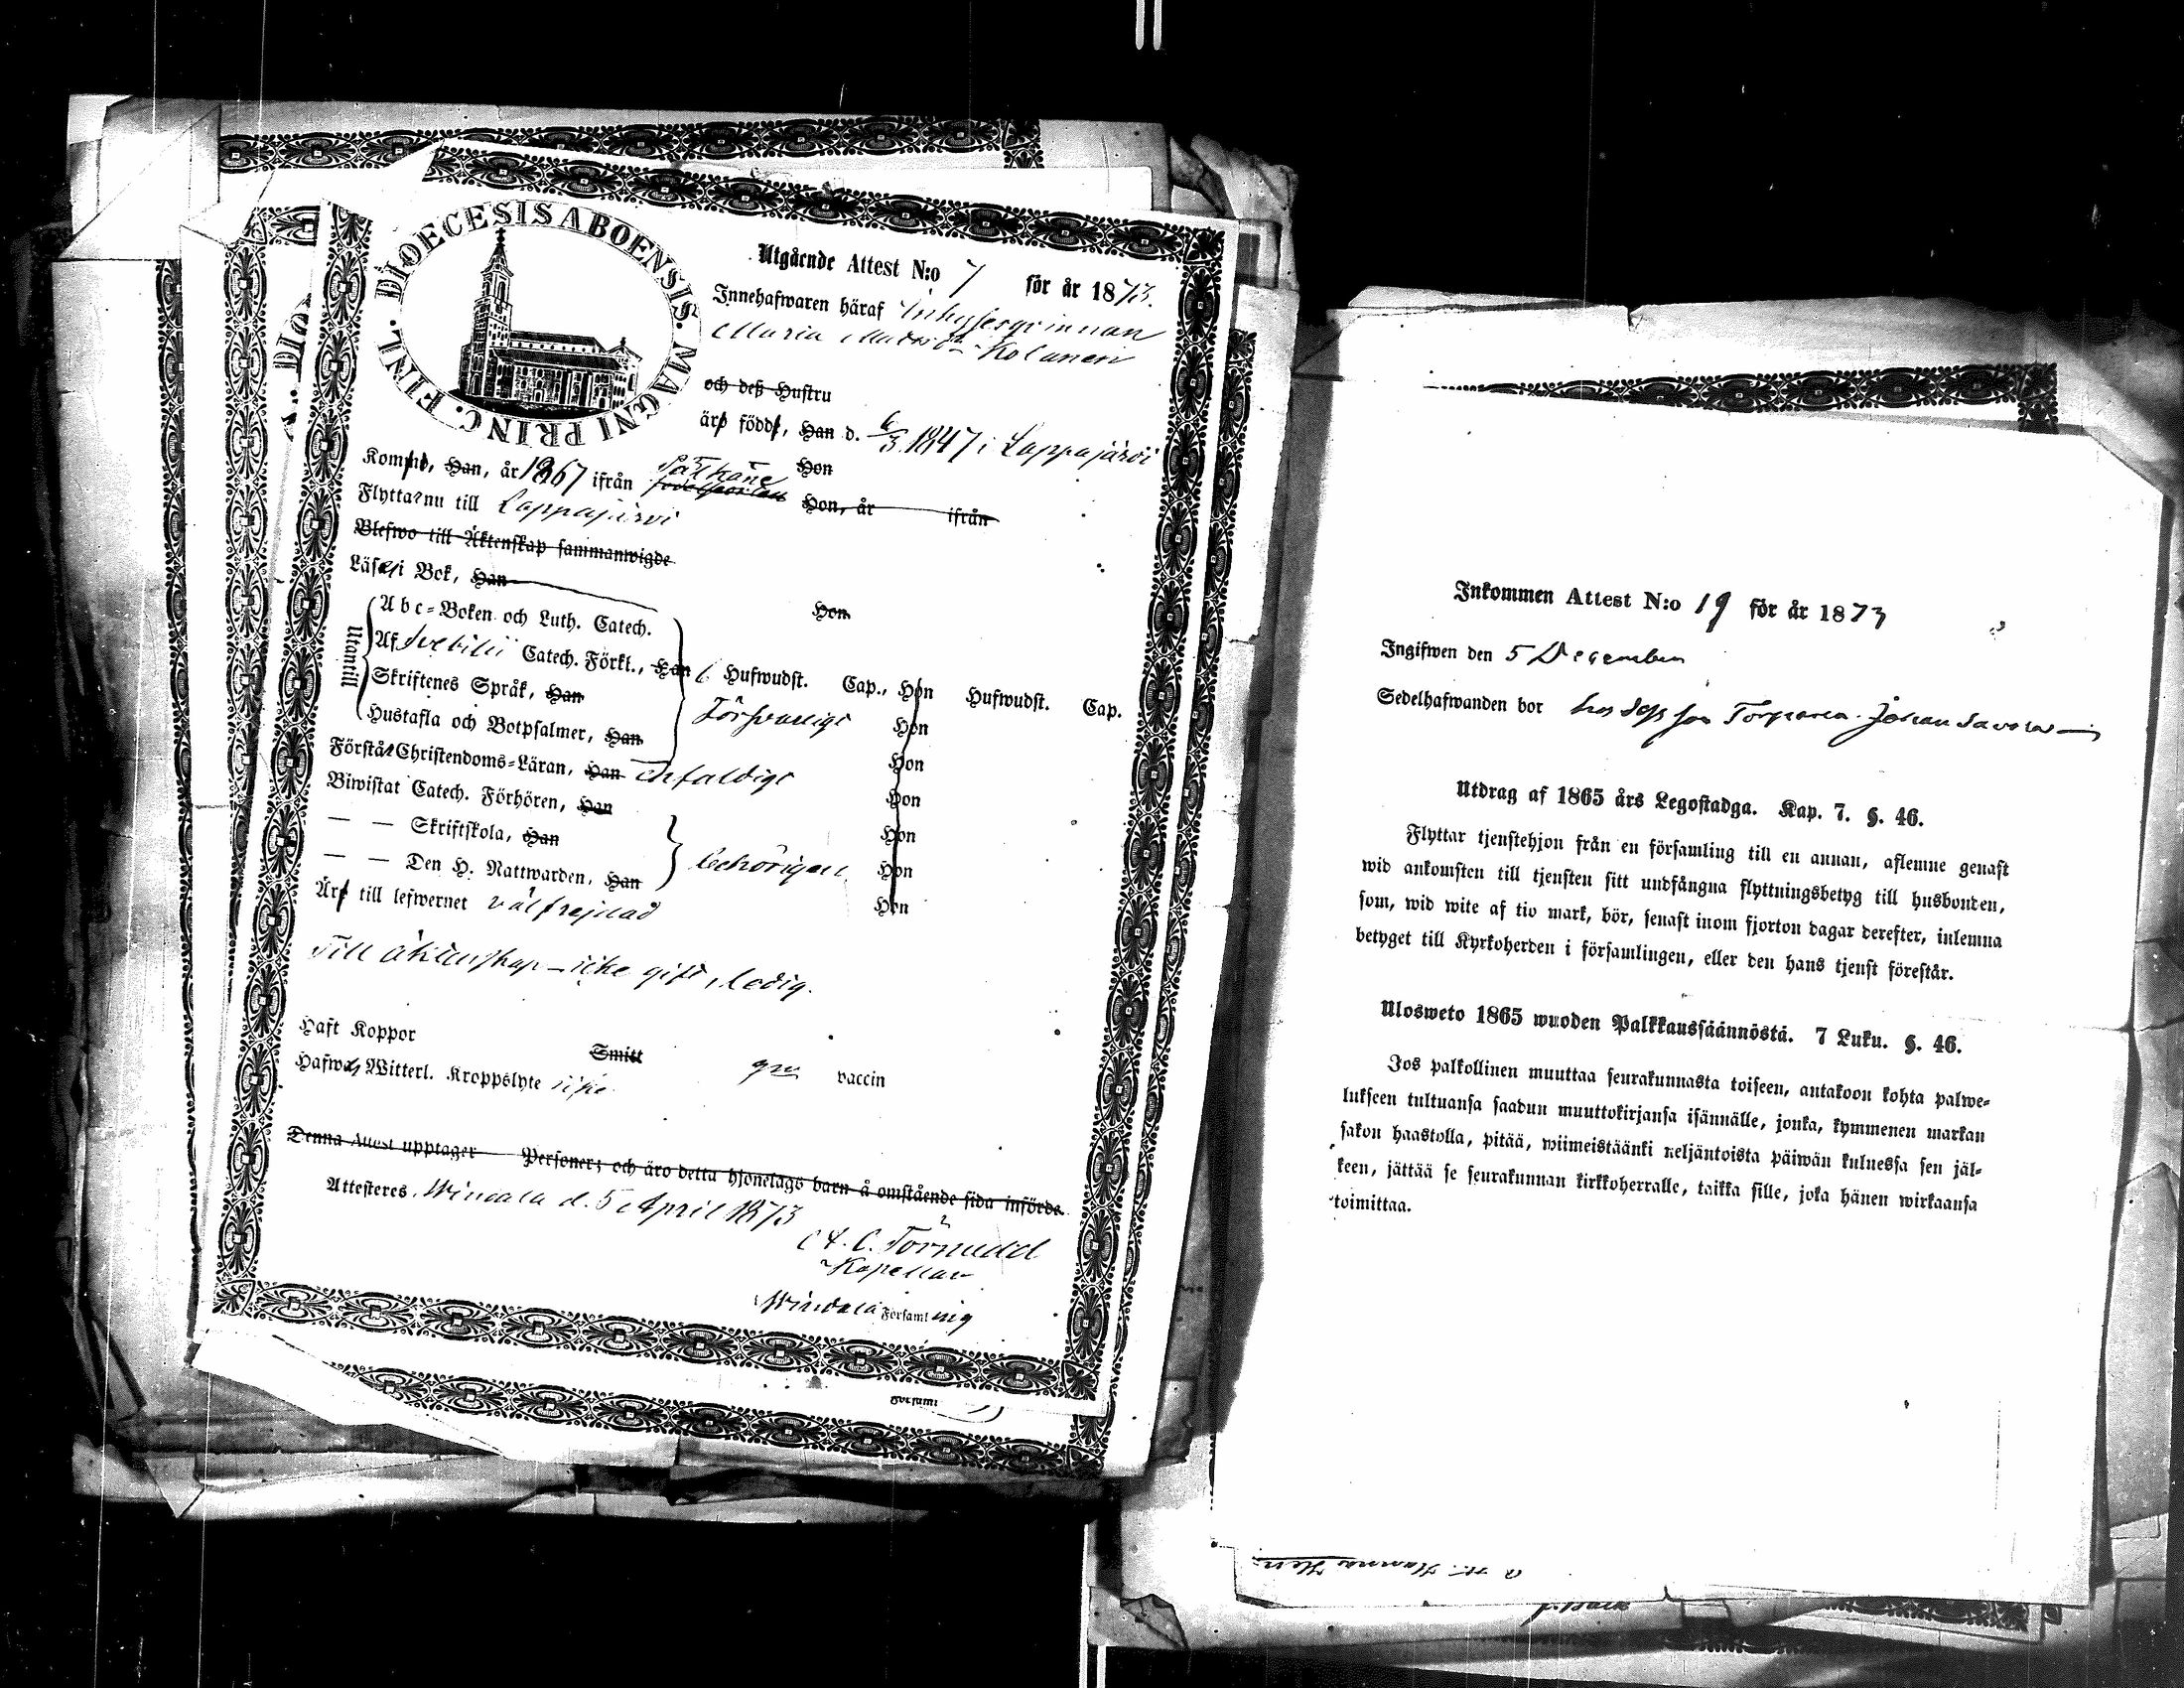 DIOECESIS ABOENSIS. MAGNI PRINC. FINL.
Utgående Attest N:o 7 för år 1873.
Innehafwaren häraf Inhysesqvinnan
Maria Matsd:r Kolanen
och deß Hustru
är född, Han d. 6/3 1847 i Lappajärvi
Hon
Kommen, Han, år 1867 ifrån Pälkäne Hon, år ifrån
Flyttar nu till Lappajärvi
Blefwo till Äktenskap sammanwigde
Läser i Bok, Han Hon
Utantill
Abc-Boken och Luth. Catech.
Af Svebilii Catech. Förkl., Han 6 Hufwudst. Cap., Hon Hufwudst. Cap.
Skriftenes Språk, Han Försvarligt Hon
Hustafla och Botpsalmer, Han Hon
Förstår Christendoms-Läran, Han enfaldigt Hon
Biwistat Catech. Förhören, Han Hon
— — Skriftskola, Han behörigen Hon
— — Den H. Nattwarden, Han Hon
Är till lefwernet välfrejdad
Till äktenskap – icke gift, ledig.
Haft Koppor Smitt vaccin
Hafwer Witterl. Kroppslyte icke
Denna Attest upptager Personer; och äro detta hjonelags barn å omstående sida införde.
Attesteres, Windala d. 5 April 1873
A. C. Törnudd
Kapellan
Windala Församling
Församl
Inkommen Attest N:o 19 för år 1873
Ingifwen den 5 December
Sedelhafwanden bor hos Torparen Johan
Utdrag af 1865 års Legostadga. Kap. 7. §. 46.
Flyttar tjenstehjon från en församling till en annan, aflemne genast
wid ankomsten till tjensten sitt undfångna flyttningsbetyg till husbonden,
som, wid wite af tio mark, bör, senast inom fjorton dagar derefter, inlemna
betyget till Kyrkoherden i församlingen, eller den hans tjenst förestår.
Ulosweto 1865 wuoden Palkkaussäännöstä. 7 Luku. §. 46.
Jos palkollinen muuttaa seurakunnasta toiseen, antakoon kohta palwe-
lukseen tultuansa saadun muuttokirjansa isännälle, jonka, kymmenen markan
sakon haastolla, pitää, wiimeistäänki neljäntoista päiwän kuluessa sen jäl-
keen, jättää se seurakunnan kirkkoherralle, taikka sille, joka hänen wirkaansa
toimittaa.